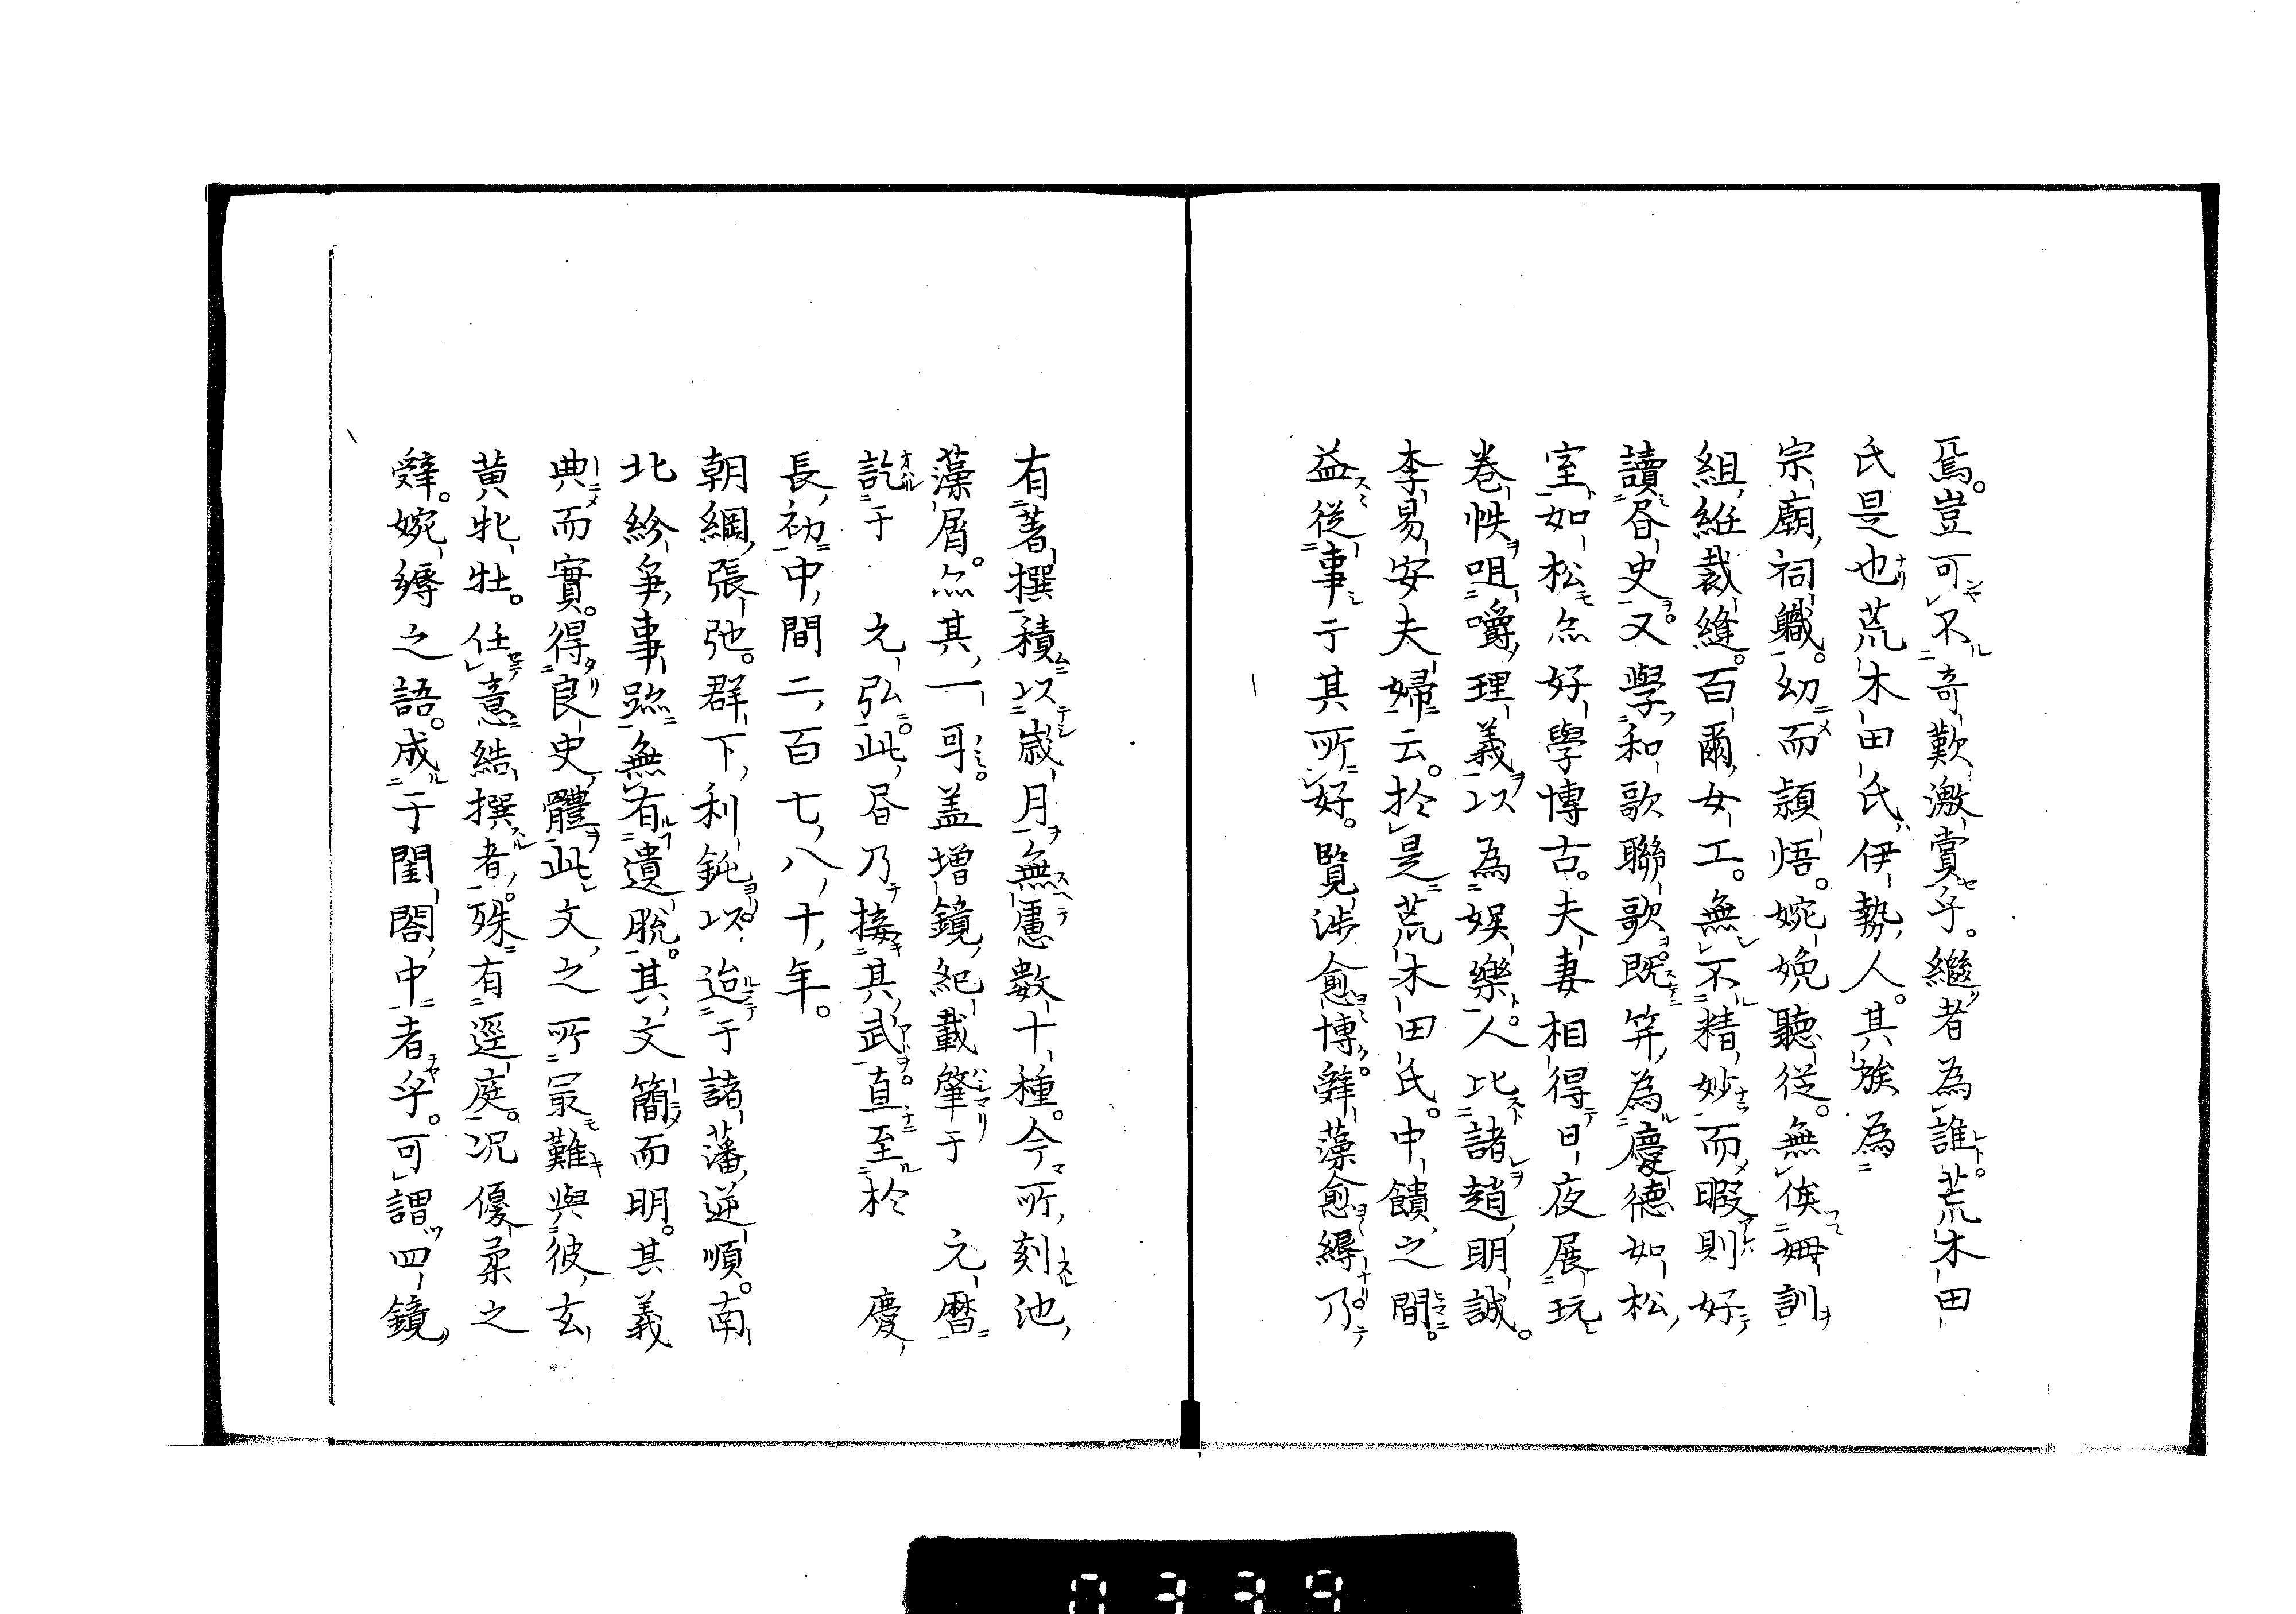 焉。豈可不奇歎激賞乎。繼者為誰。荒木田
氏是也荒木田氏伊勢人。其族為
宗廟祠職。幼而穎悟。婉娩聽從。無俟姆訓
組紝裁縫。百爾女工。無不精妙而暇則好
讀昏史又學和歌聯歌既笄為慶德如松
室如松亦好學博古。夫妻相得日夜展玩
巻帙咀嚼理義以為娯樂。人比諸趙明誠。
李易安夫婦云。於是荒木田氏。中饋之間。
益從事于其所好。覽渉愈博。辭藻愈縟乃
有著撰積以歳月無慮數十種。今所刻池
藻屑。亦其一耳。盖增鏡紀載肇于　元暦
訖于　元弘。此昏乃接其武。直至於　慶
長初中間二百七八十年。
朝綱張弛。群下利鈍。以迨于諸藩逆順。南
北紛爭事跡無有遺脱。其文簡而明。其義
典而實。得良史體此文之所最難與彼玄
黄牝牡。任意結撰者。殊有逕庭。况優柔之
辭。婉縟之語。成于閨閤中者乎。可謂四鏡
0339